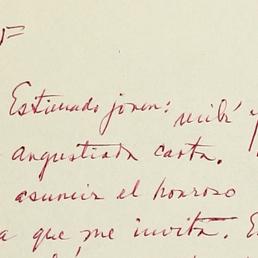 Estimado joven: recibí
angustiada carta.
asumir el honroso
a que me invita. E